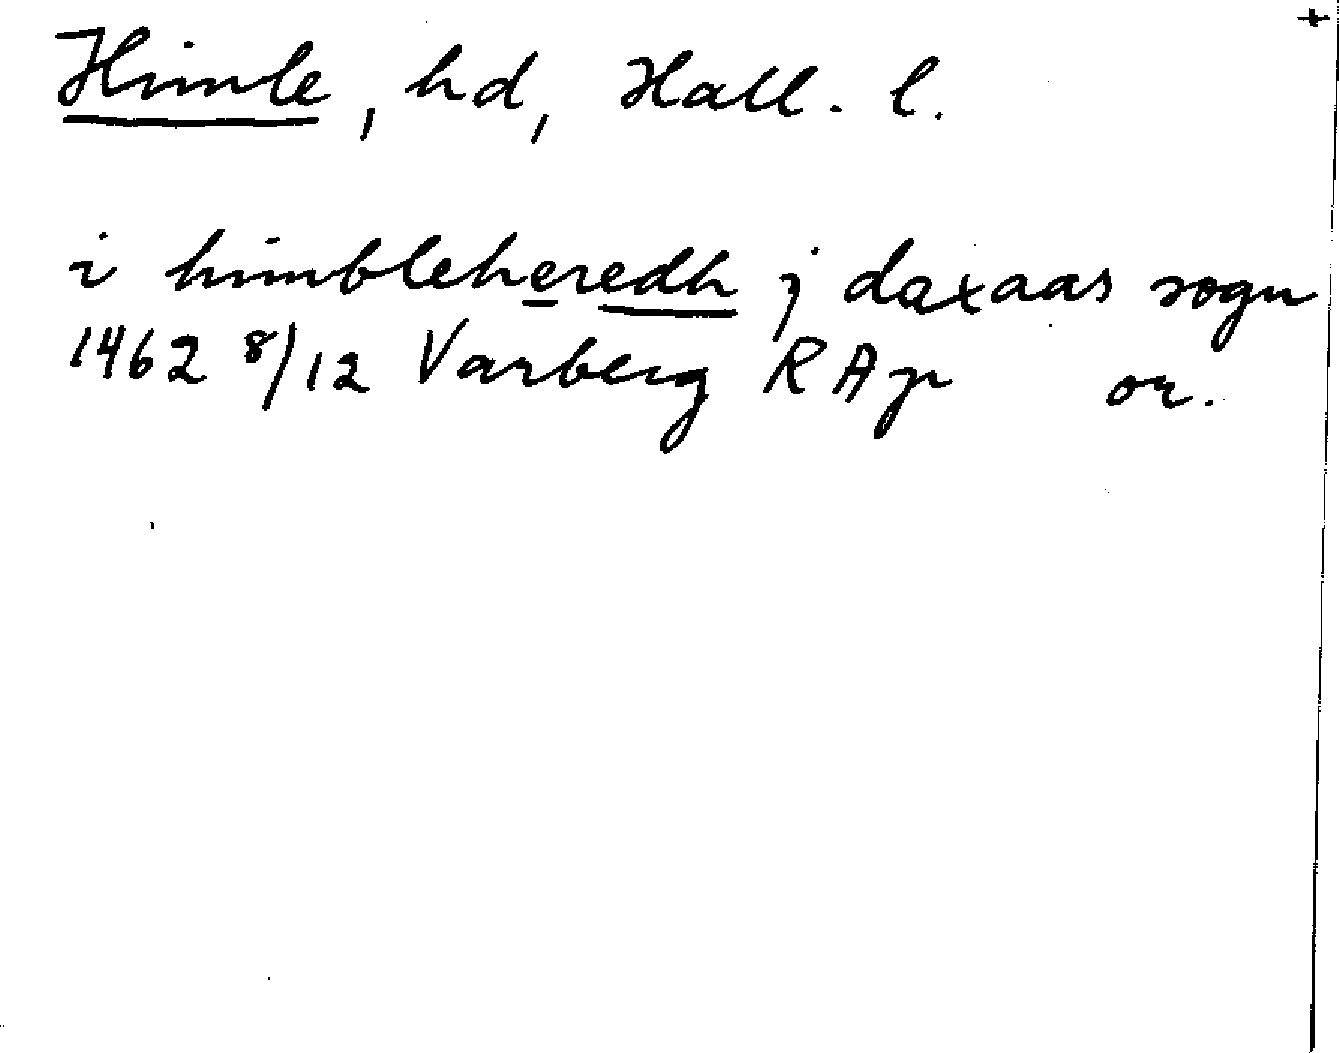 +
Himle, hd, Hall. l.
i himbleheredh j daxaas sogn
1462 8/12 Varberg RAp or.